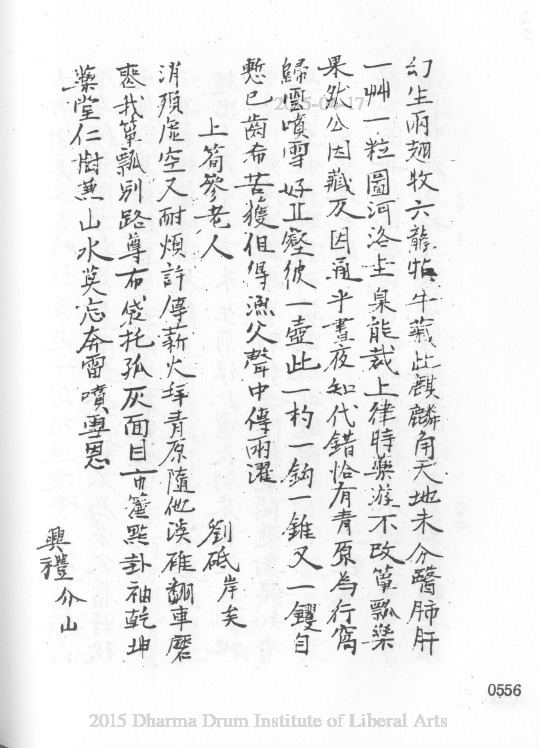 幻生兩翅牧六龍牯牛藏此麒麟角天地未分醫肺肝
一艸一粒圖河洛坐臬能裁上律時藥遊不改簞瓢樂
果然公因藏反因通乎晝夜知代錯恰有青原為行窩
歸雲噴雪好丘壑彼一壺此一杓一鈎一錐又一钁自
慙已齒希苦獲但得漁父聲中傳雨濯
劉砥岸矣
上筍參老人
消殞虛空又耐煩許傳薪火拜青原隨他淡碓翻車磨
還我簞瓢別路尊布袋托孤灰面目市籃點卦袖乾坤
藥堂仁樹兼山水莫忘奔雷噴雪恩
興禮介山
0556
2025-04-17
2015 Dharma Drum Institute of Liberal Arts